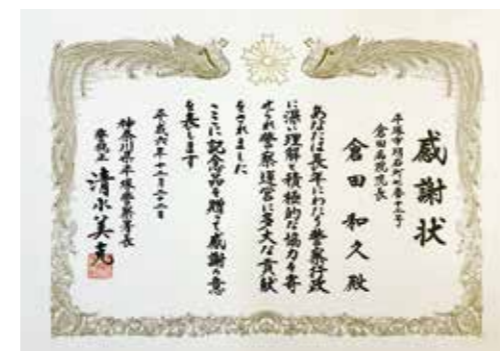 感謝状
平塚市明石町七番十三号
倉田病院院長
倉田和久殿
あなたは長年にわたり警察行政
に深い理解と積極的な協力を寄
せられ警察運営に多大な貢献
をされました
ここに記念品を贈って感謝の意
を表します
平成六年十二月二十二日
神奈川県平塚警察署長
警視正 清水美克